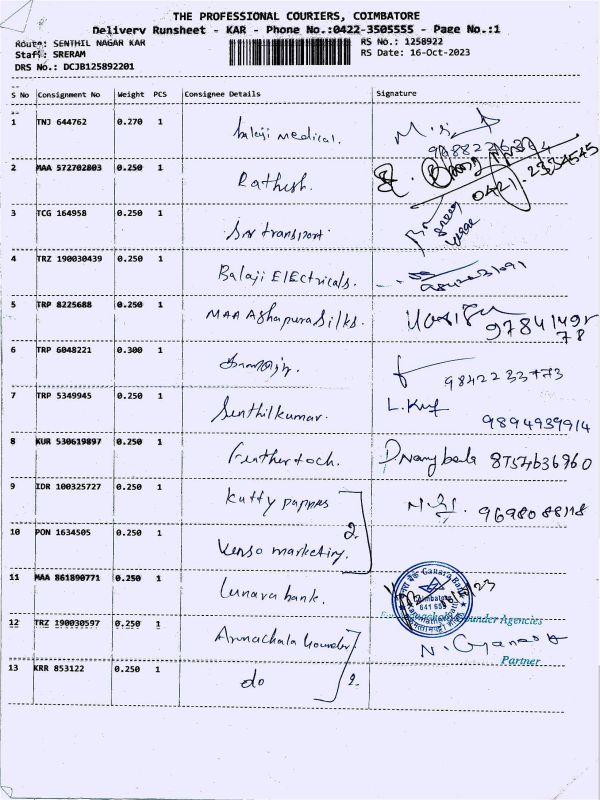 THE PROFESSIONAL COURIERS, COIMBATORE
Delivery Runsheet - KAR - Phone No.:0422-3505555 - Page No.:1
Route: SENTHIL NAGAR KAR
RS No.: 1258922
Staff: SRERAM
RS Date: 16-Oct-2023
DRS No.: DCJB125892201
S No Consignment No Weight PCS Consignee Details Signature
1 TNJ 644762 0.270 1 balaji medical.
2 MAA 572702803 0.250 1 Rathish.
0421-2334545
3 TCG 164958 0.250 1 transport
4 TRZ 190030439 0.250 1 Balaji Electricals.
5 TRP 8225688 0.250 1 MAA Ashapura Silks.
97841491
78
6 TRP 6048221 0.300 1
9842233773
7 TRP 5349945 0.250 1 Senthilkumar.
9894939914
8 KUR 530619897 0.250 1
8754636960
9 IDR 100325727 0.250 1 Kutty pappes
9698088118
10 PON 1634505 0.250 1 Venso marketing. 2.
11 MAA 861890771 0.250 1 Canara bank.
Canara Bank
641 659
12 TRZ 190030597 0.250 1 Arunachala Gounder
Founder Agencies
Partner
13 KRR 853122 0.250 1 do 2.